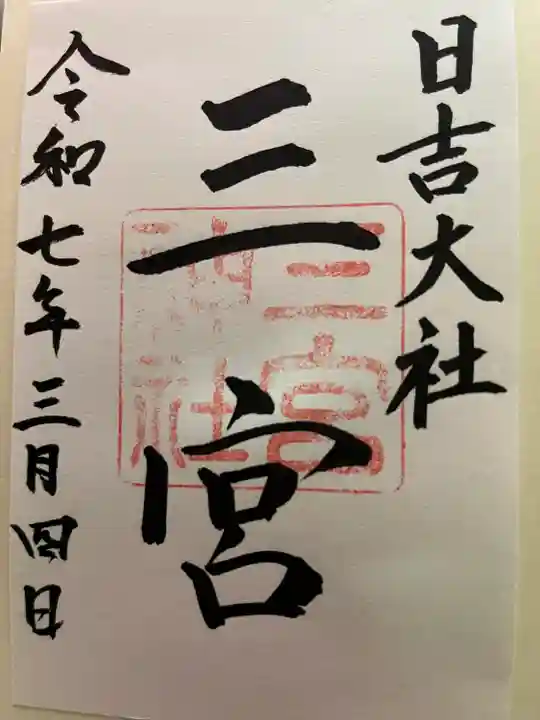 日吉大社
三宮
令和七年三月四日